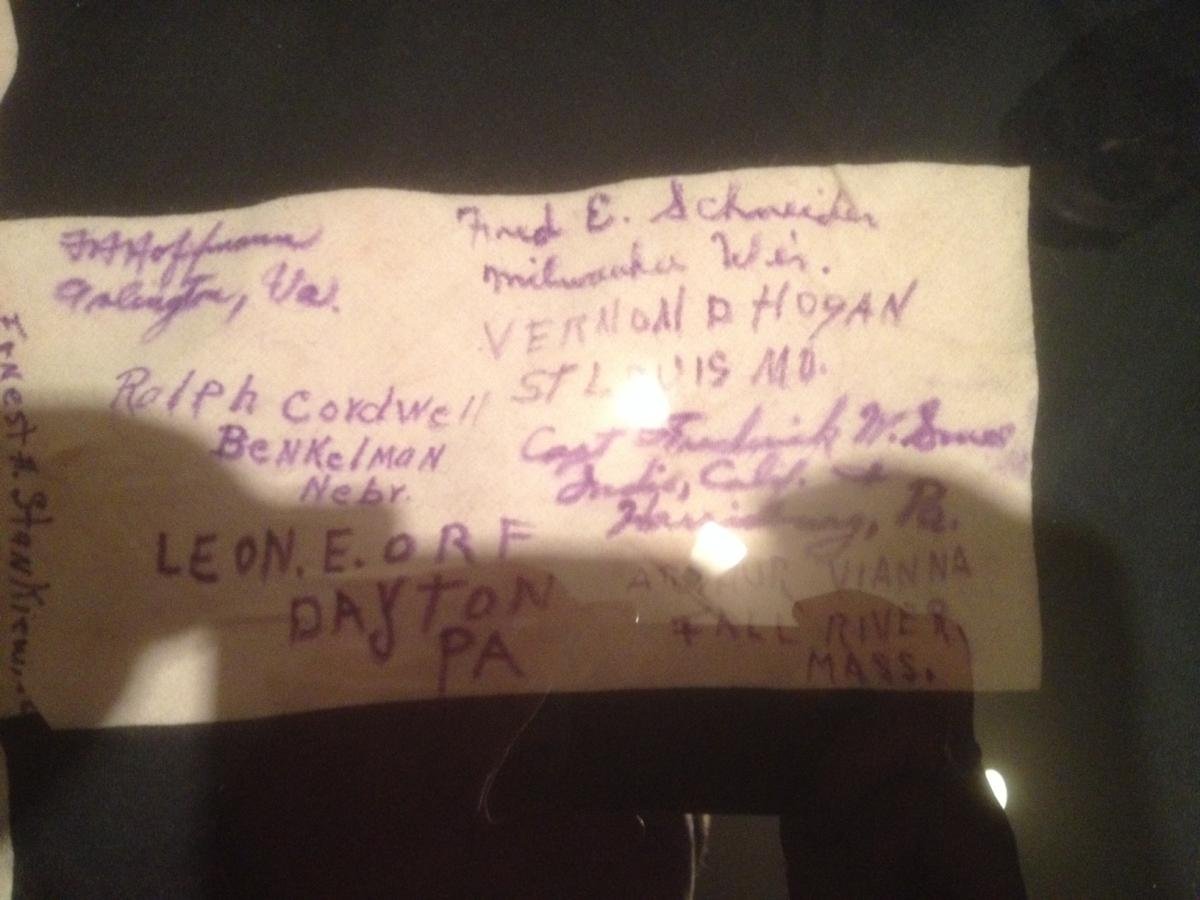 Hoffmann
Arlington, Va.
Ralph Cordwell
Benkelman
Nebr.
LEON. E. ORF
DAYTON
PA
Fred E. Schneider
Milwaukee Wis.
VERNON D HOGAN
ST LOUIS MO.
Capt Frederick W.
Indio, Calif. +
Harrisburg, Pa.
ARTHUR VIANNA
FALL RIVER,
MASS.
Ernest A.